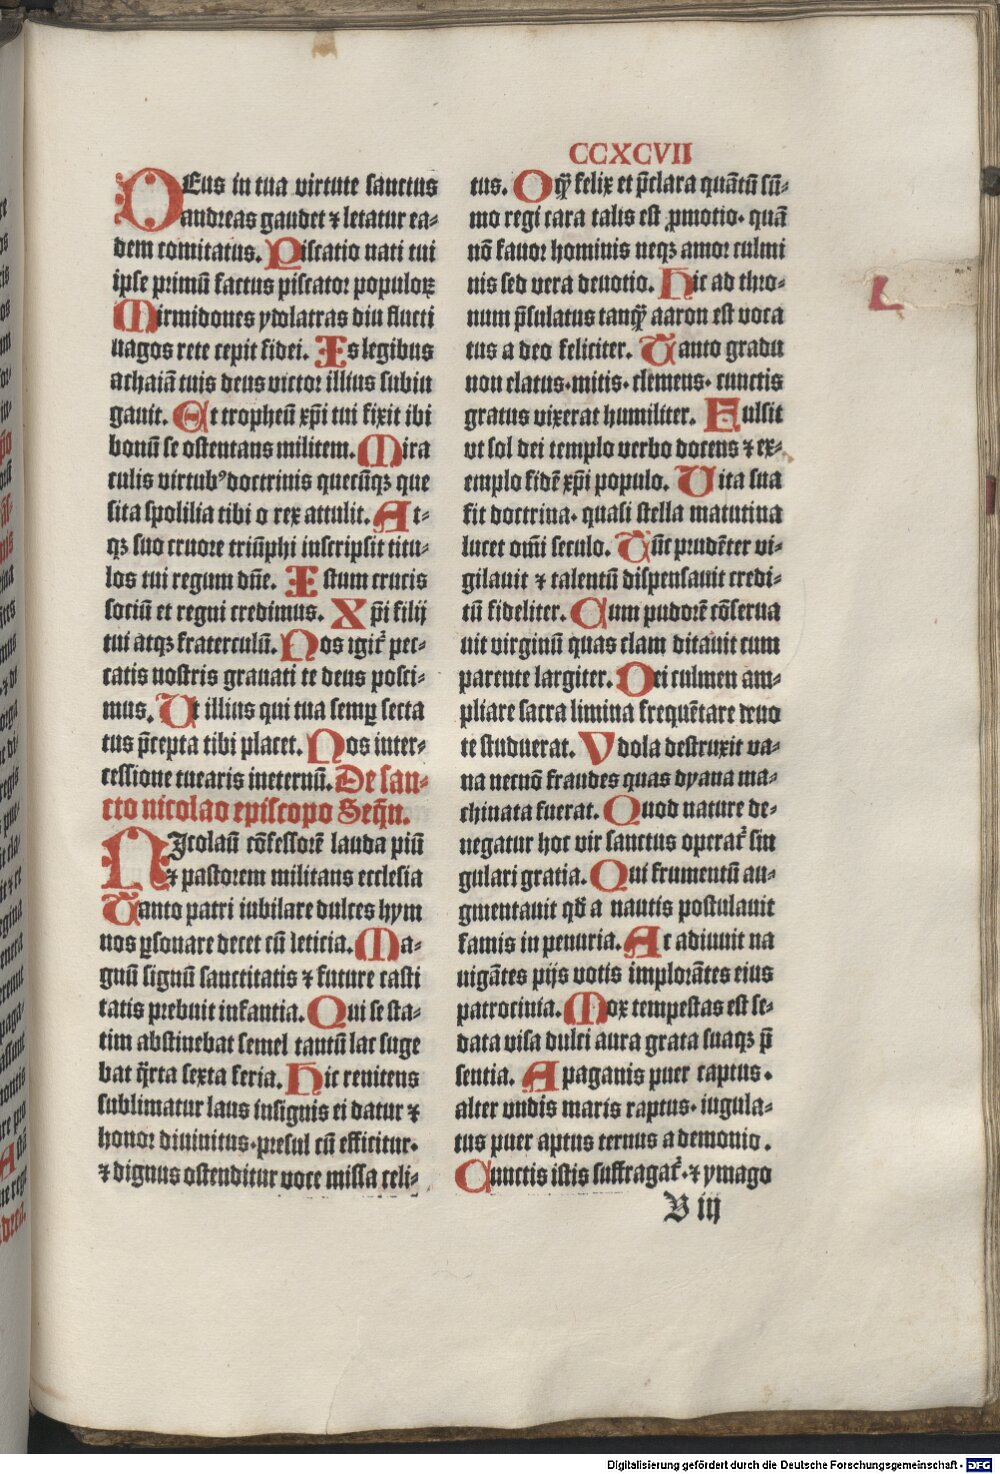 CCXCVII
DEus in tua virtute sanctus
andreas gaudet ⁊ letatur ea⸗
dem comitatus. Piscatio nati tui
ipse primū factus piscator populoꝝ
Mirmidones ydolatras diu flucti
uagos rete cepit fidei. Is legibus
achaiā tuis deus victor illius subiu
gauit. Et tropheū xp̄i tui fixit ibi
bonū se ostentans militem. Mira
culis virtubꝰ doctrinis quecūqꝫ que
sita spolilia tibi o rex attulit. At⸗
qꝫ suo cruore triūphi inscripsit titu⸗
los tui regum dn̄e. Istum crucis
sociū et regni credimus. Xp̄i filij
tui atqꝫ fraterculū. Nos igit̄ pec⸗
catis nostris grauati te deus posci⸗
mus. Ut illius qui tua semꝑ secta
tus p̄cepta tibi placet. Nos inter⸗
cessione tuearis ineternū. De san⸗
cto nicolao episcopo Seqn̄.
NIcolaū cōfessorē lauda piū
⁊ pastorem militans ecclesia
Tanto patri iubilare dulces hym
nos ꝑsonare decet cū leticia. Ma⸗
gnū signū sanctitatis ⁊ future casti
tatis prebuit infantia. Qui se sta⸗
tim abstinebat semel tantū lac suge
bat q̄rta sexta feria. Hic renitens
sublimatur laus insignis ei datur ⁊
honor diuinitus·presul cū efficitur·
⁊ dignus ostenditur voce missa celi⸗
tus. O q̄ȝ felix et p̄clara quātū sū⸗
mo regi cara talis est ꝓmotio· quā
nō fauor hominis neqꝫ amor culmi
nis sed vera deuotio. Hic ad thro⸗
num p̄sulatus tanq̄ȝ aaron est voca
tus a deo feliciter. Tanto gradu
non elatus·mitis·clemens·cunctis
gratus vixerat humiliter. Fulsit
vt sol dei templo verbo docens ⁊ ex⸗
emplo fidē xp̄i populo. Vita sua
fit doctrina· quasi stella matutina
lucet om̄i seculo. Tūc prudēter vi⸗
gilauit ⁊ talentū dispensauit credi⸗
tū fideliter. Cum pudorē cōserua
uit virginū quas clam ditauit cum
parente largiter. Dei culmen am⸗
pliare sacra limina frequētare deuo
te studuerat. Ydola destruxit va⸗
na necnō fraudes quas dyana ma⸗
chinata fuerat. Quod nature de⸗
negatur hoc vir sanctus operat̄ sin
gulari gratia. Qui frumentū au⸗
gmentauit qd̄ a nautis postulauit
famis in penuria. Ac adiuuit na
uigātes pijs votis implorātes eius
patrocinia. Mox tempestas est se⸗
data visa dulci aura grata suaqꝫ p̄
sentia. A paganis puer captus·
alter vndis maris raptus·iugula⸗
tus puer aptus ternus a demonio.
Cunctis istis suffragat̄·⁊ ymago
B iij
L
Digitalisierung gefördert durch die Deutsche Forschungsgemeinschaft - DFG